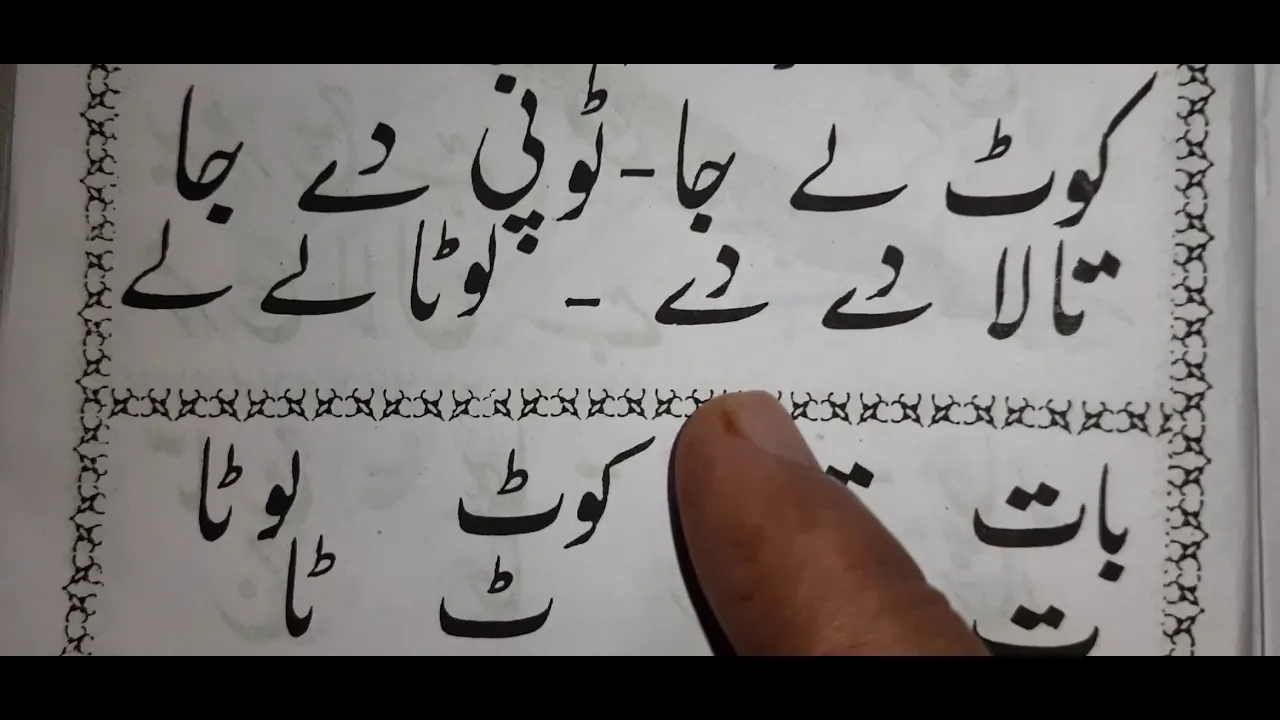 کوٹ لے جا - ٹوپی دے جا
تالا دے دے - لوٹا لے لے
بات کوٹ لوٹا
ت ٹ ٹا